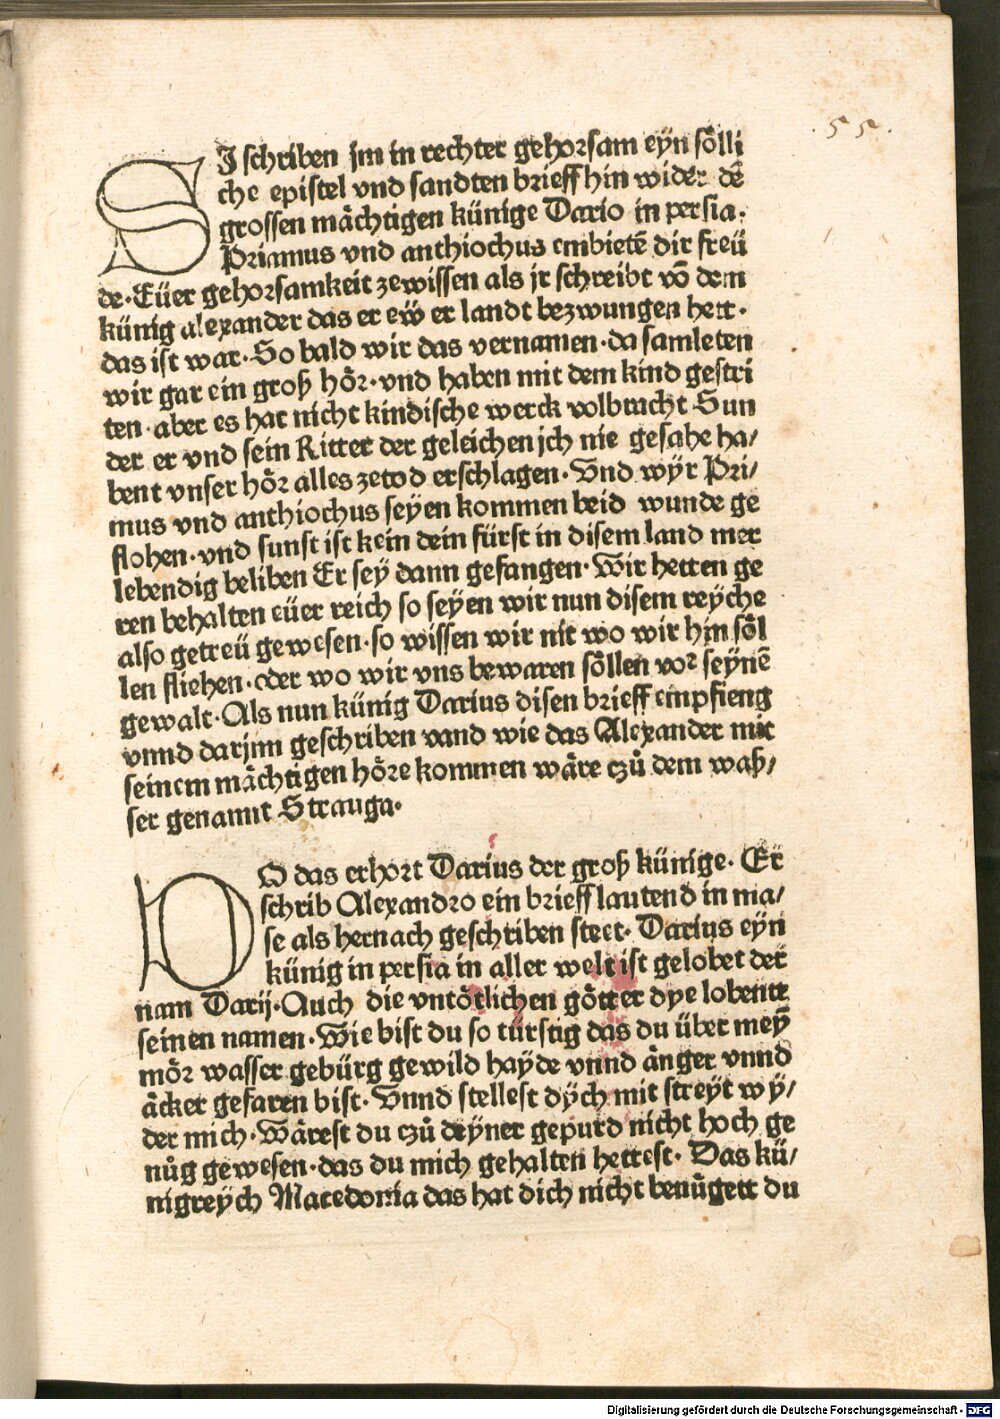 .55.
SI schriben jm in rechter gehorsam eyn sölli
che epistel vnd sandten brieff hin wider dē
grossen mächtigen künige Dario in persia.
Priamus vnd anthiochus embietē dir freü
de·Eüer gehorsamkeit zewissen als jr schreibt vō dem
künig alexander das er eẅ er landt bezwungen hett·
das ist war·So bald wir das vernamen·da samleten
wir gar ein groß hör·vnd haben mit dem kind gestri
ten·aber es hat nicht kindische werck volbracht Sun
der er vnd sein Ritter der geleichen jch nie gesahe ha/
bent vnser hör alles zetod erschlagen·Vnd wyr Pri/
mus vnd anthiochus seyen kommen beid wunde ge
flohen·vnd sunst ist kein dein fürst in disem land mer
lebendig beliben Er sey dann gefangen·Wir hetten ge
ren behalten eüer reich so seyen wir nun disem reyche
also getreü gewesen·so wissen wir nit wo wir hin söl
len fliehen·oder wo wir vns bewaren söllen vor seynē
gewalt·Als nun künig Darius disen brieff empfieng
vnnd darjnn geschriben vand wie das Alexander mit
seinem mächtigen höre kommen wäre czů dem waß/
ser genamt Strauga·
DO das erhort Darius der groß künige· Er
schrib Alexandro ein brieff lautend in ma/
se als hernach geschriben steet· Darius eyn
künig in persia in aller welt ist gelobet der
nam Darij·Auch die vntötlichen götter dye lobentt
seinen namen·Wie bist du so türstig das du über meȳ
mör wasser gebürg gewild hayde vnnd änger vnnd
äcker gefaren bist·Vnnd stellest dÿch mit streyt wÿ/
der mich·Wärest du czů deyner gepurd nicht hoch ge
nůg gewesen·das du mich gehalten hettest· Das kü/
nigreÿch Macedonia das hat dich nicht benůgett du
Digitalisierung gefördert durch die Deutsche Forschungsgemeinschaft - DFG